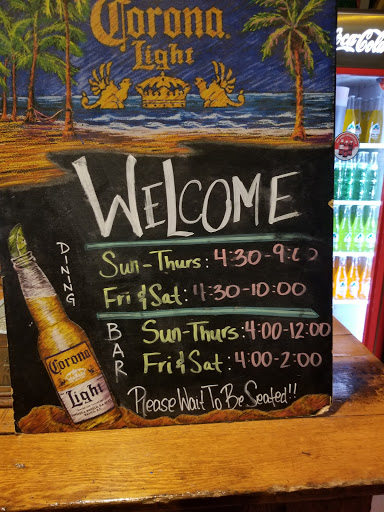 Corona
Light
Coca-Cola
WELCOME
DINING
Sun-Thurs: 4:30-9:00
Fri & Sat: 4:30-10:00
BAR
Sun-Thurs: 4:00-12:00
Fri & Sat: 4:00-2:00
Corona
Light
Please Wait To Be Seated!!